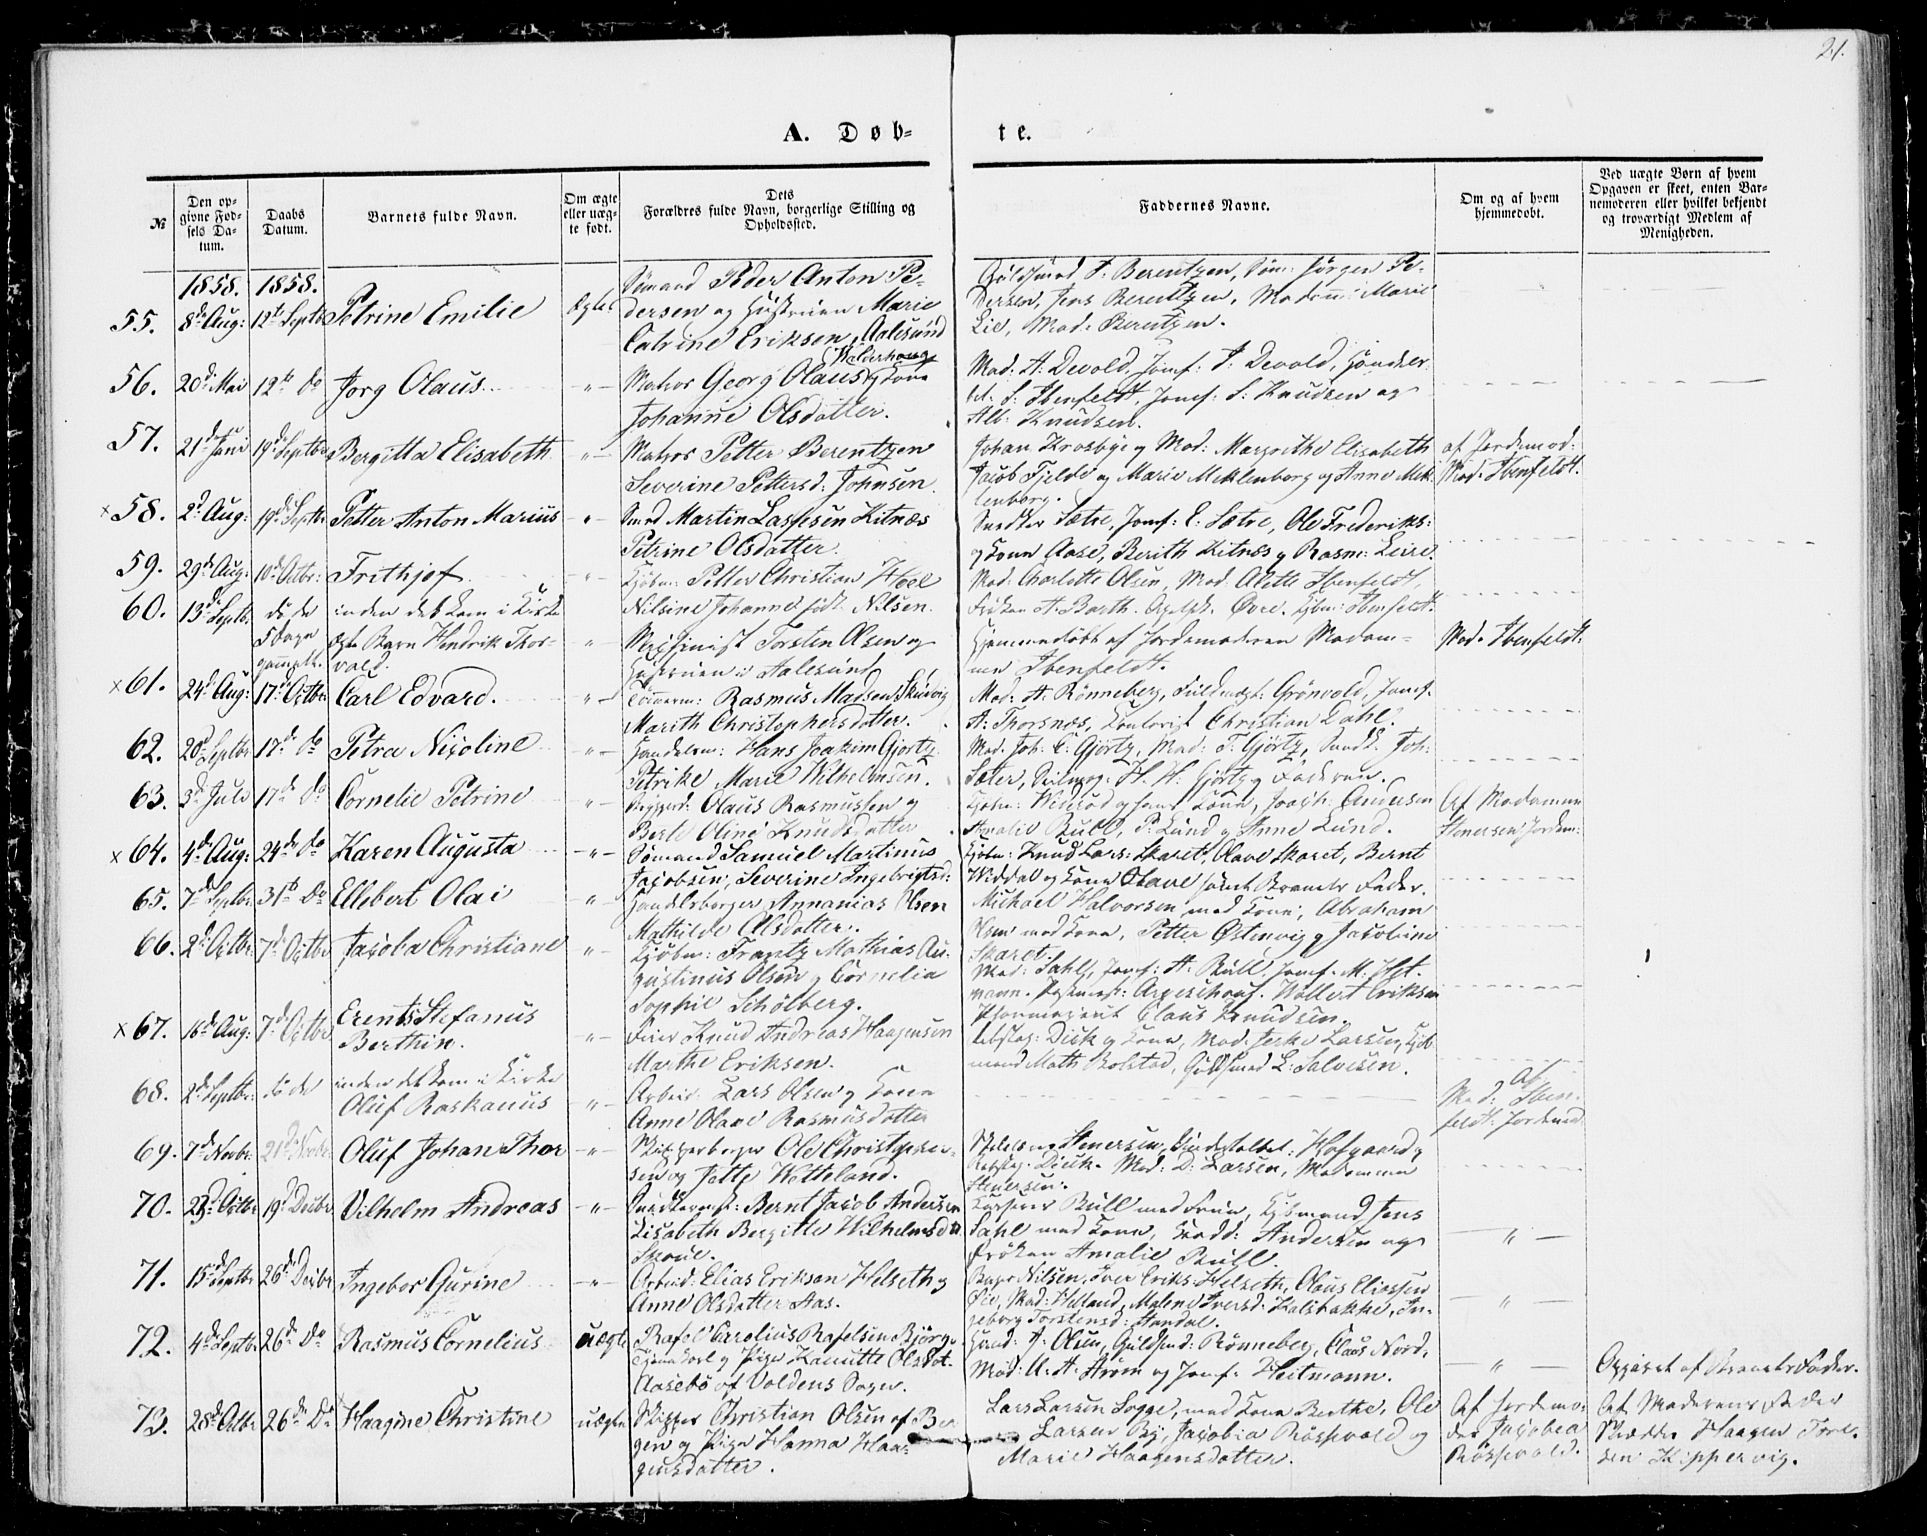 21.
A. Døb-
te.
№
Den op-
givne Fød-
sels Da-
tum.
Daabs
Datum.
Barnets fulde Navn.
Om ægte
eller uæg-
te født.
Dets
Forældres fulde Navn, borgerlige Stilling og
Opholdssted.
Faddernes Navne.
Om og af hvem
hjemmedøbt.
Ved uægte Børn af hvem
Opgaven er skeet, enten Bar-
nemoderen eller hvilket bekjendt
og troværdigt Medlem af
Menigheden.
1858. 1858.
55. 8de Aug: 12te Septbr Petrine Emilie Ægte
Sømand Peder Anton Pe-
dersen og Hustruen Marie
Catrine Eriksen, Aalesund
Guldsmed F. Berentzen, Søm: Jørgen Pe-
dersen, Jens Berentzen, Madam Marie
Lie, Mad: Berentzen.
56. 20d Mai 12te Do Jørg Olaus - " -
Valderhoug
Matros Georg Olaus og Kone
Johanne Olsdatter.
Mad: A. Devold, Jomf: P. Devold, Handler
bet. S. Ibenfeldt, Jomf: S. Knudsen og
Alb: Knudsen.
57. 21d Juni 19de Septbr Bergitta Elisabeth - " -
Matros Petter Berentzen
Severine Pettersd: Johnsen.
Johan Krosbye og Mad: Margrethe Elisabeth
Jacob Fjelde og Marie Meklenborg og Anne Mek-
lenborg.
af Jordemod:
Mad: Ibenfeldt.
x 58. 2d Aug: 19de Septbr Petter Anton Marius - " -
Smed Martin Lassesen Kitnæs
Petrine Olsdatter.
Snedker Sætre, Jomf: E. Sætre, Ole Frederiks:
og Kone Aase, Berith Kitnæs og Rasm: Leire.
59. 29de Aug: 10de Octbr: Frithjof - " -
Kjøbm: Petter Christian Hoel
Nilsine Johanne født Nilsen.
Mad: Charlotte Olsen, Mad: Alette Ibenfeldt,
Frøken A. Barth. Øvre. Kjøbm: Ibenfeldt.
60. 13de Septbr. døde
5 Dage
gammelt.
inden det kom i Kirke
Ægte Barn Hendrik Thor-
vald. - " -
Maschinist Torsten Olsen og
Hustruen i Aalesund
Hjemmedøbt af Jordemoderen Madam-
me Ibenfeldt.
Mad: Ibenfeldt.
x 61. 24d Aug: 17de Octbr: Carl Edvard. - " -
Tømerm: Rasmus Madsen
Marith Christophersdatter.
Mad: A: Rønneberg, Fuldmægt: Grønvold, Jomf.
A: Thorsnæs, Kontorist Christian Dahl.
62. 20d Septbr 17de Do Petra Nicoline - " -
Handelsm: Hans Joakim Gjørtz
Petrike Marie Wilhelmsen.
Mad: Joh: C: Gjørtz, Mad: T. Gjørtz, Snedk. Joh:
Sæter, H. H: Gjørtz og Faderen.
63. 3d Juli 17de Do Cornelie Petrine - " -
Olaus Rasmussen og
Berte Oline Knudsdatter
Kjøbm: og hans Kone, Joach: Andersen
Amalie Bull, P. Lund og Anne Lund.
Af Madamme
Stenersen Jordem:
x 64. 4de Aug: 24de Do Karen Augusta - " -
Sømand Samuel Martinus
Jacobsen, Severine Ingebrigtsd:
Kjøbm: Knud Lars: Skaret, Olave Skaret, Bernt
Widdal og Kone Olave samt Barnets Fader.
65. 7de Septbr 31te Do Ellebert Olai "
Handelsborger Annanias Olsen
Mathilde Olsdatter.
Michael Halvorsen med Kone, Abraham
Olsen med Kone, Petter Østenvig og Jacobine
Skaret.
66. 2d Octbr. 7de Octbr Jacoba Christiane "
Kjøbm: Frantz Mathias Au-
gustinus Olsen og Cornelia
Sophie Schølberg.
Mad: Dahl, Jomf: A. Bull, Jomf. M. Het-
mann. Wollert Eriksen
Claus Knudsen.
x 67. 16de Aug: 7de Octbr Erents Stefanus
Berthin. - " -
Knud Andreas Haagensen
Marthe Eriksen.
Rebslag: Dick og Kone, Mad: Jerke Larsen, Kjøb-
mand Math Bolstad, Guldsmed L: Salvesen.
68. 2de Septbr: døde inden det kom i Kirke
Oluf Raskanus - " -
Arbeid: Lars Olsen og Kone
Anne Olave Rasmusdatter
Af
Mad: Iben-
feldt. Jordemod
69. 7de Novbr. 21de Novbr Oluf Johan Thor - " -
Skipperborger Ole Christopher-
sen og Jette Watteland.
Stenersen, Hofgaard og
Rebslag: Dick. Mad: D: Larsen, Madamme
Stenersen:
70. 23d Octbr 19d Decbr Vilhelm Andreas - " -
Snedkermest: Bernt Jacob Andersen
Lisabeth Bergitte Wilhelmsdtr
Kasserer Bull med Frue, Kjøbmand Jens
Dahl med Kone, Andersen og
Frøken Amalie Bull.
- " -
71. 15de Septbr 26de Decbr Ingebor Gurine - " -
Arbeid: Elias Eriksen Helseth og
Anne Olsdatter Aas.
Nilsen, Iver Eriks: Helseth, Olaus Eliassen
Øie, Mad: Helland, Malene Iversd: Kalibakke, In-
geborg Torstensd: Standal.
- " -
72. 4de Septbr 26de Do Rasmus Cornelius uægte
Rafel Carolius Rafelsen Bjørge
Tjenestkarl og Pige Kanutte Olsdat.
Aasebø af Voldens Sogn.
Hand: A. Olsen, Guldsmed: Rønneberg, Claus Nord,
Mad: A. A. Strøm og Jomf: Heitmann.
" -
Opgivet af Barnets Fader.
73. 28de Octbr 26de Do Haagine Christine uægte
Skipper Christian Olsen af Ber-
gen og Pige Hanna Haa-
gensdatter.
Lars Larsen Sogge, med Kone Berthe, Ole
Larsen By, Jacobia Røssevold og
Marie Haagensdatter.
Af Jordemo-
der Jacobea
Røssevold.
Af Moderens Fader
Skrædder Haagen Tore-
sen Kippervig.